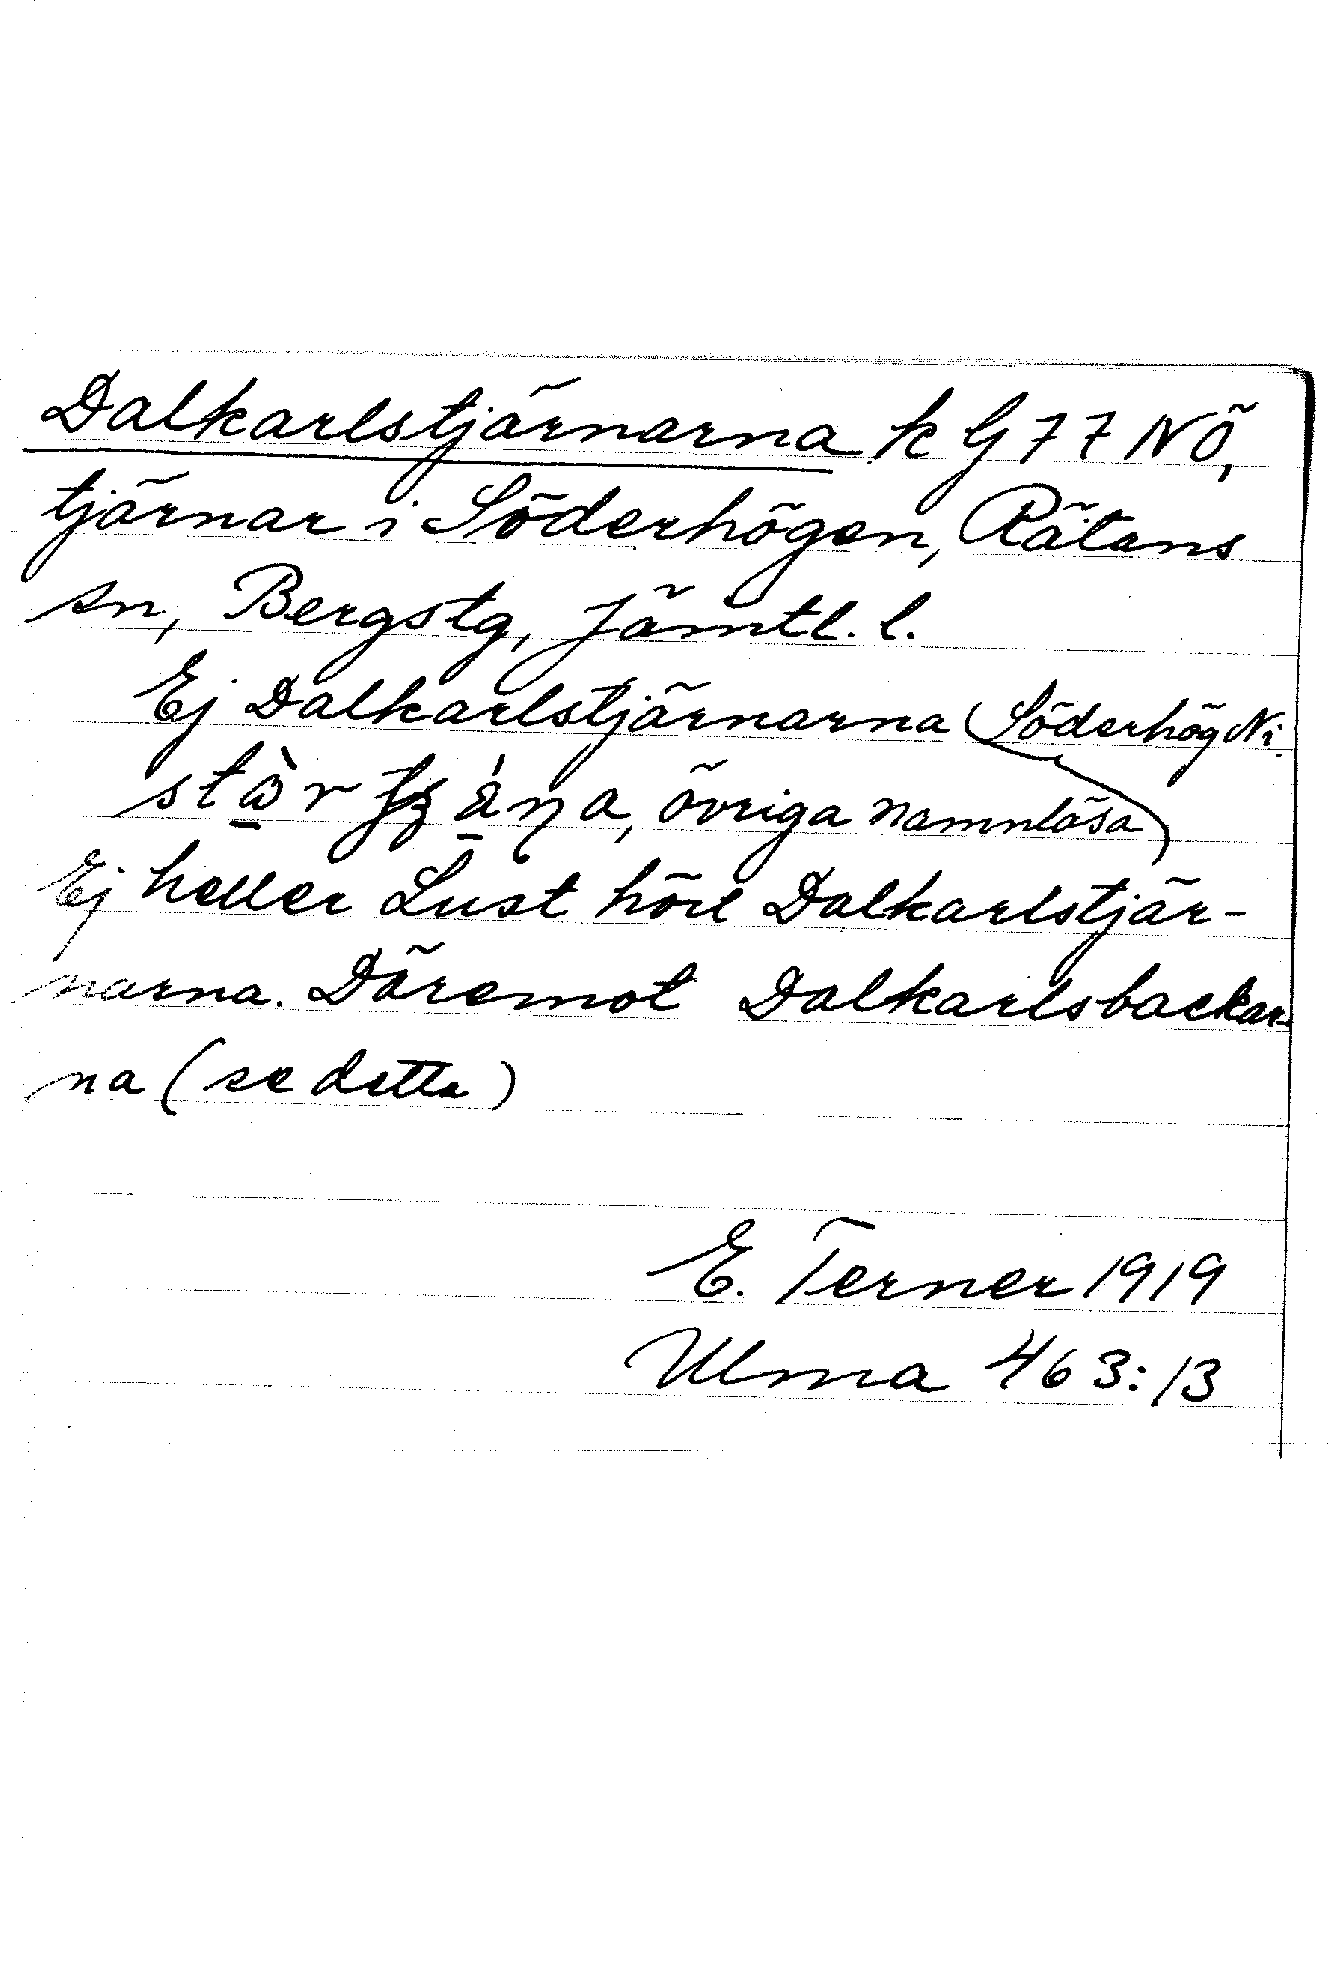 Dalkarlstjärnarna k G 77 NÖ,
tjärnar i Söderhögen, Rätans
sn, Bergstg, Jämtl. l.
Ej Dalkarlstjärnarna (Söderhög Ni.
övriga namnlösa)
Ej heller Lust hört Dalkarlstjär-
narna. Däremot Dalkarlsbackar-
na (se detta)
E. Terner 1919
Ulma 463:13